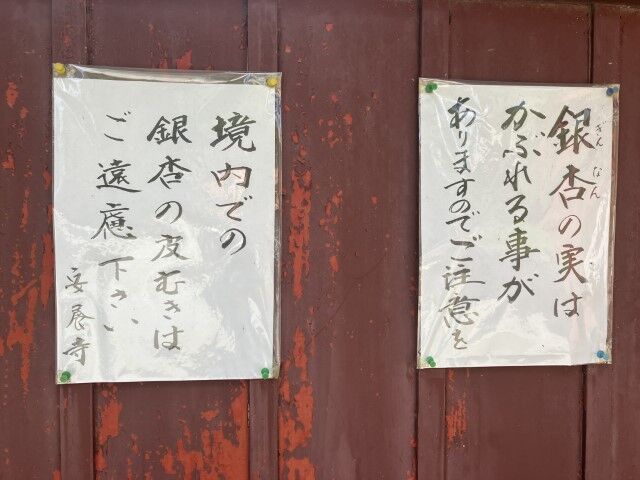 銀杏の実は
ぎんなん
かぶれる事が
ありますのでご注意を
境内での
銀杏の皮むきは
ご遠慮下さい